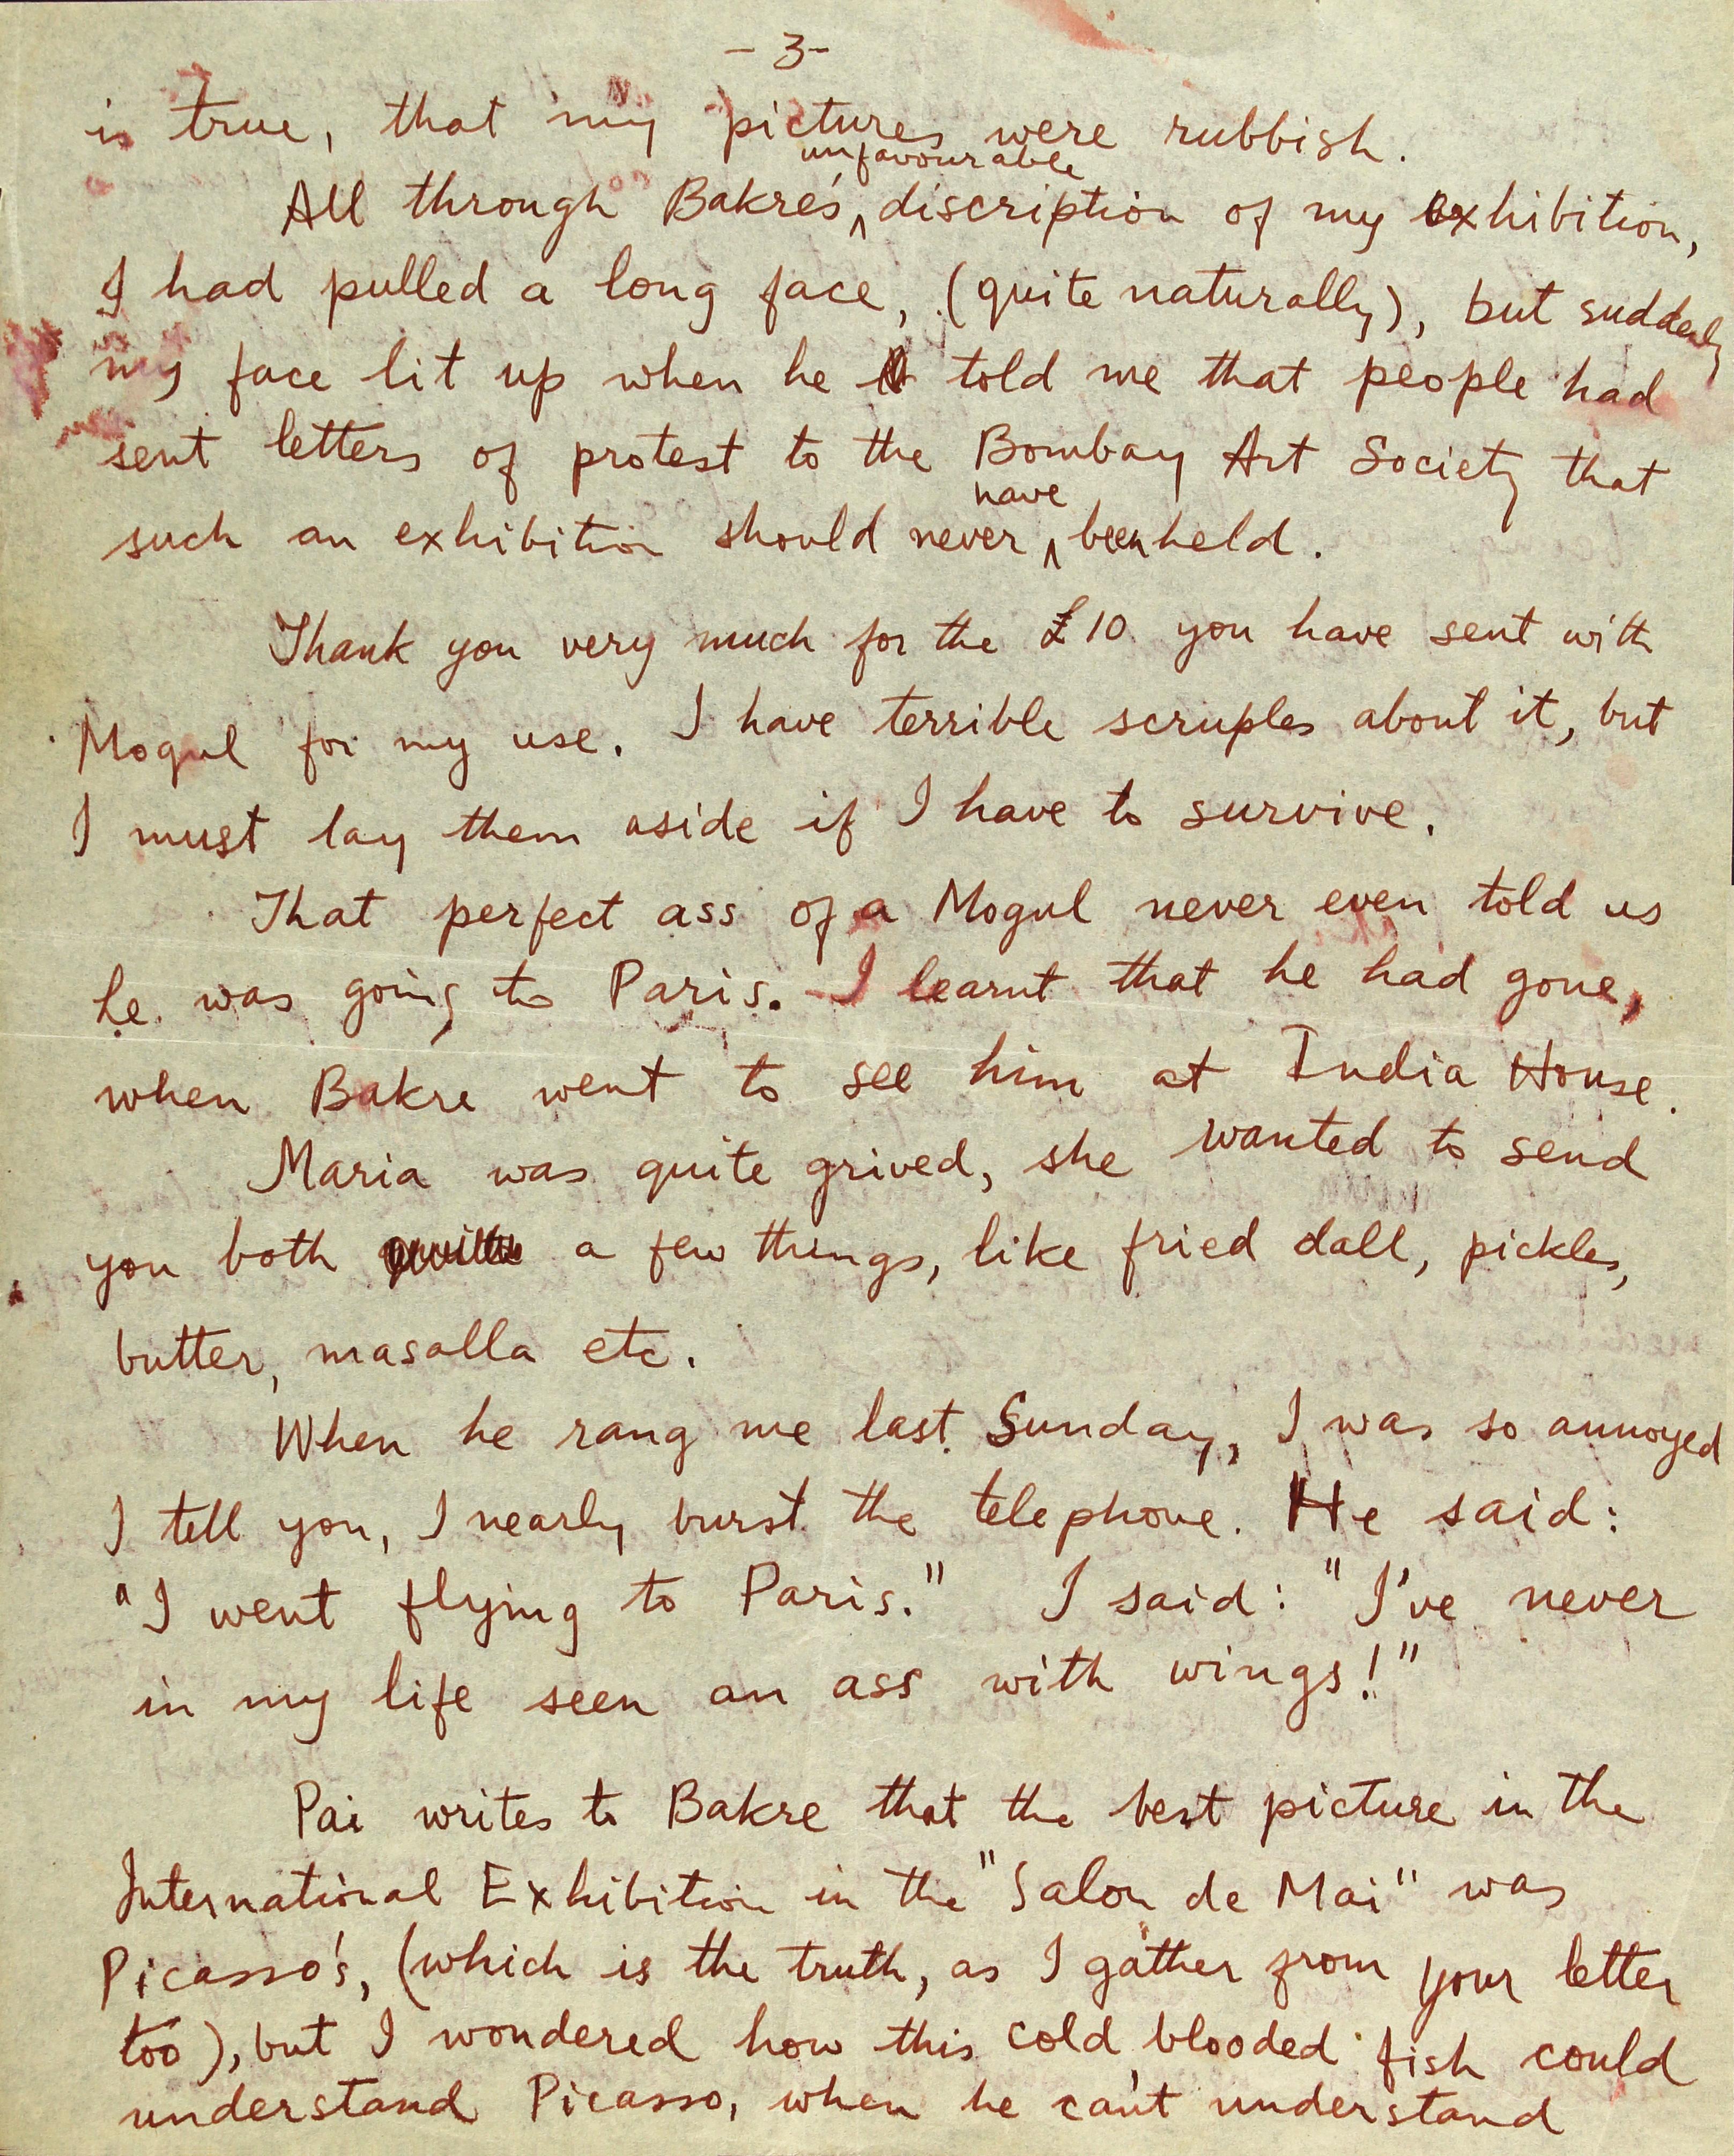 -3-
is true, that my pictures were rubbish.
unfavourable
All through Bakre's ^ discription of my exhibition,
I had pulled a long face, (quite naturally), but suddenly
my face lit up when he told me that people had
sent letters of protest to the Bombay Art Society that
have
such an exhibition should never ^ been held.
Thank you very much for the £10 you have sent with
Mogul for my use. I have terrible scruples about it, but
I must lay them aside if I have to survive.
That perfect ass of a Mogul never even told us
he was going to Paris. I learnt that he had gone,
when Bakre went to see him at India House.
Maria was quite grived, she wanted to send
you both a few things, like fried dall, pickles,
butter, masalla etc.
When he rang me last Sunday, I was so annoyed
I tell you, I nearly burst the telephone. He said:
"I went flying to Paris." I said: "I've never
in my life seen an ass with wings!"
Pai writes to Bakre that the best picture in the
International Exhibition in the "Salon de Mai" was
Picasso's, (which is the truth, as I gather from your letter
too), but I wondered how this cold blooded fish could
understand Picasso, when he can't understand